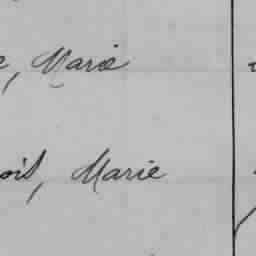 , Marie
ois, Marie